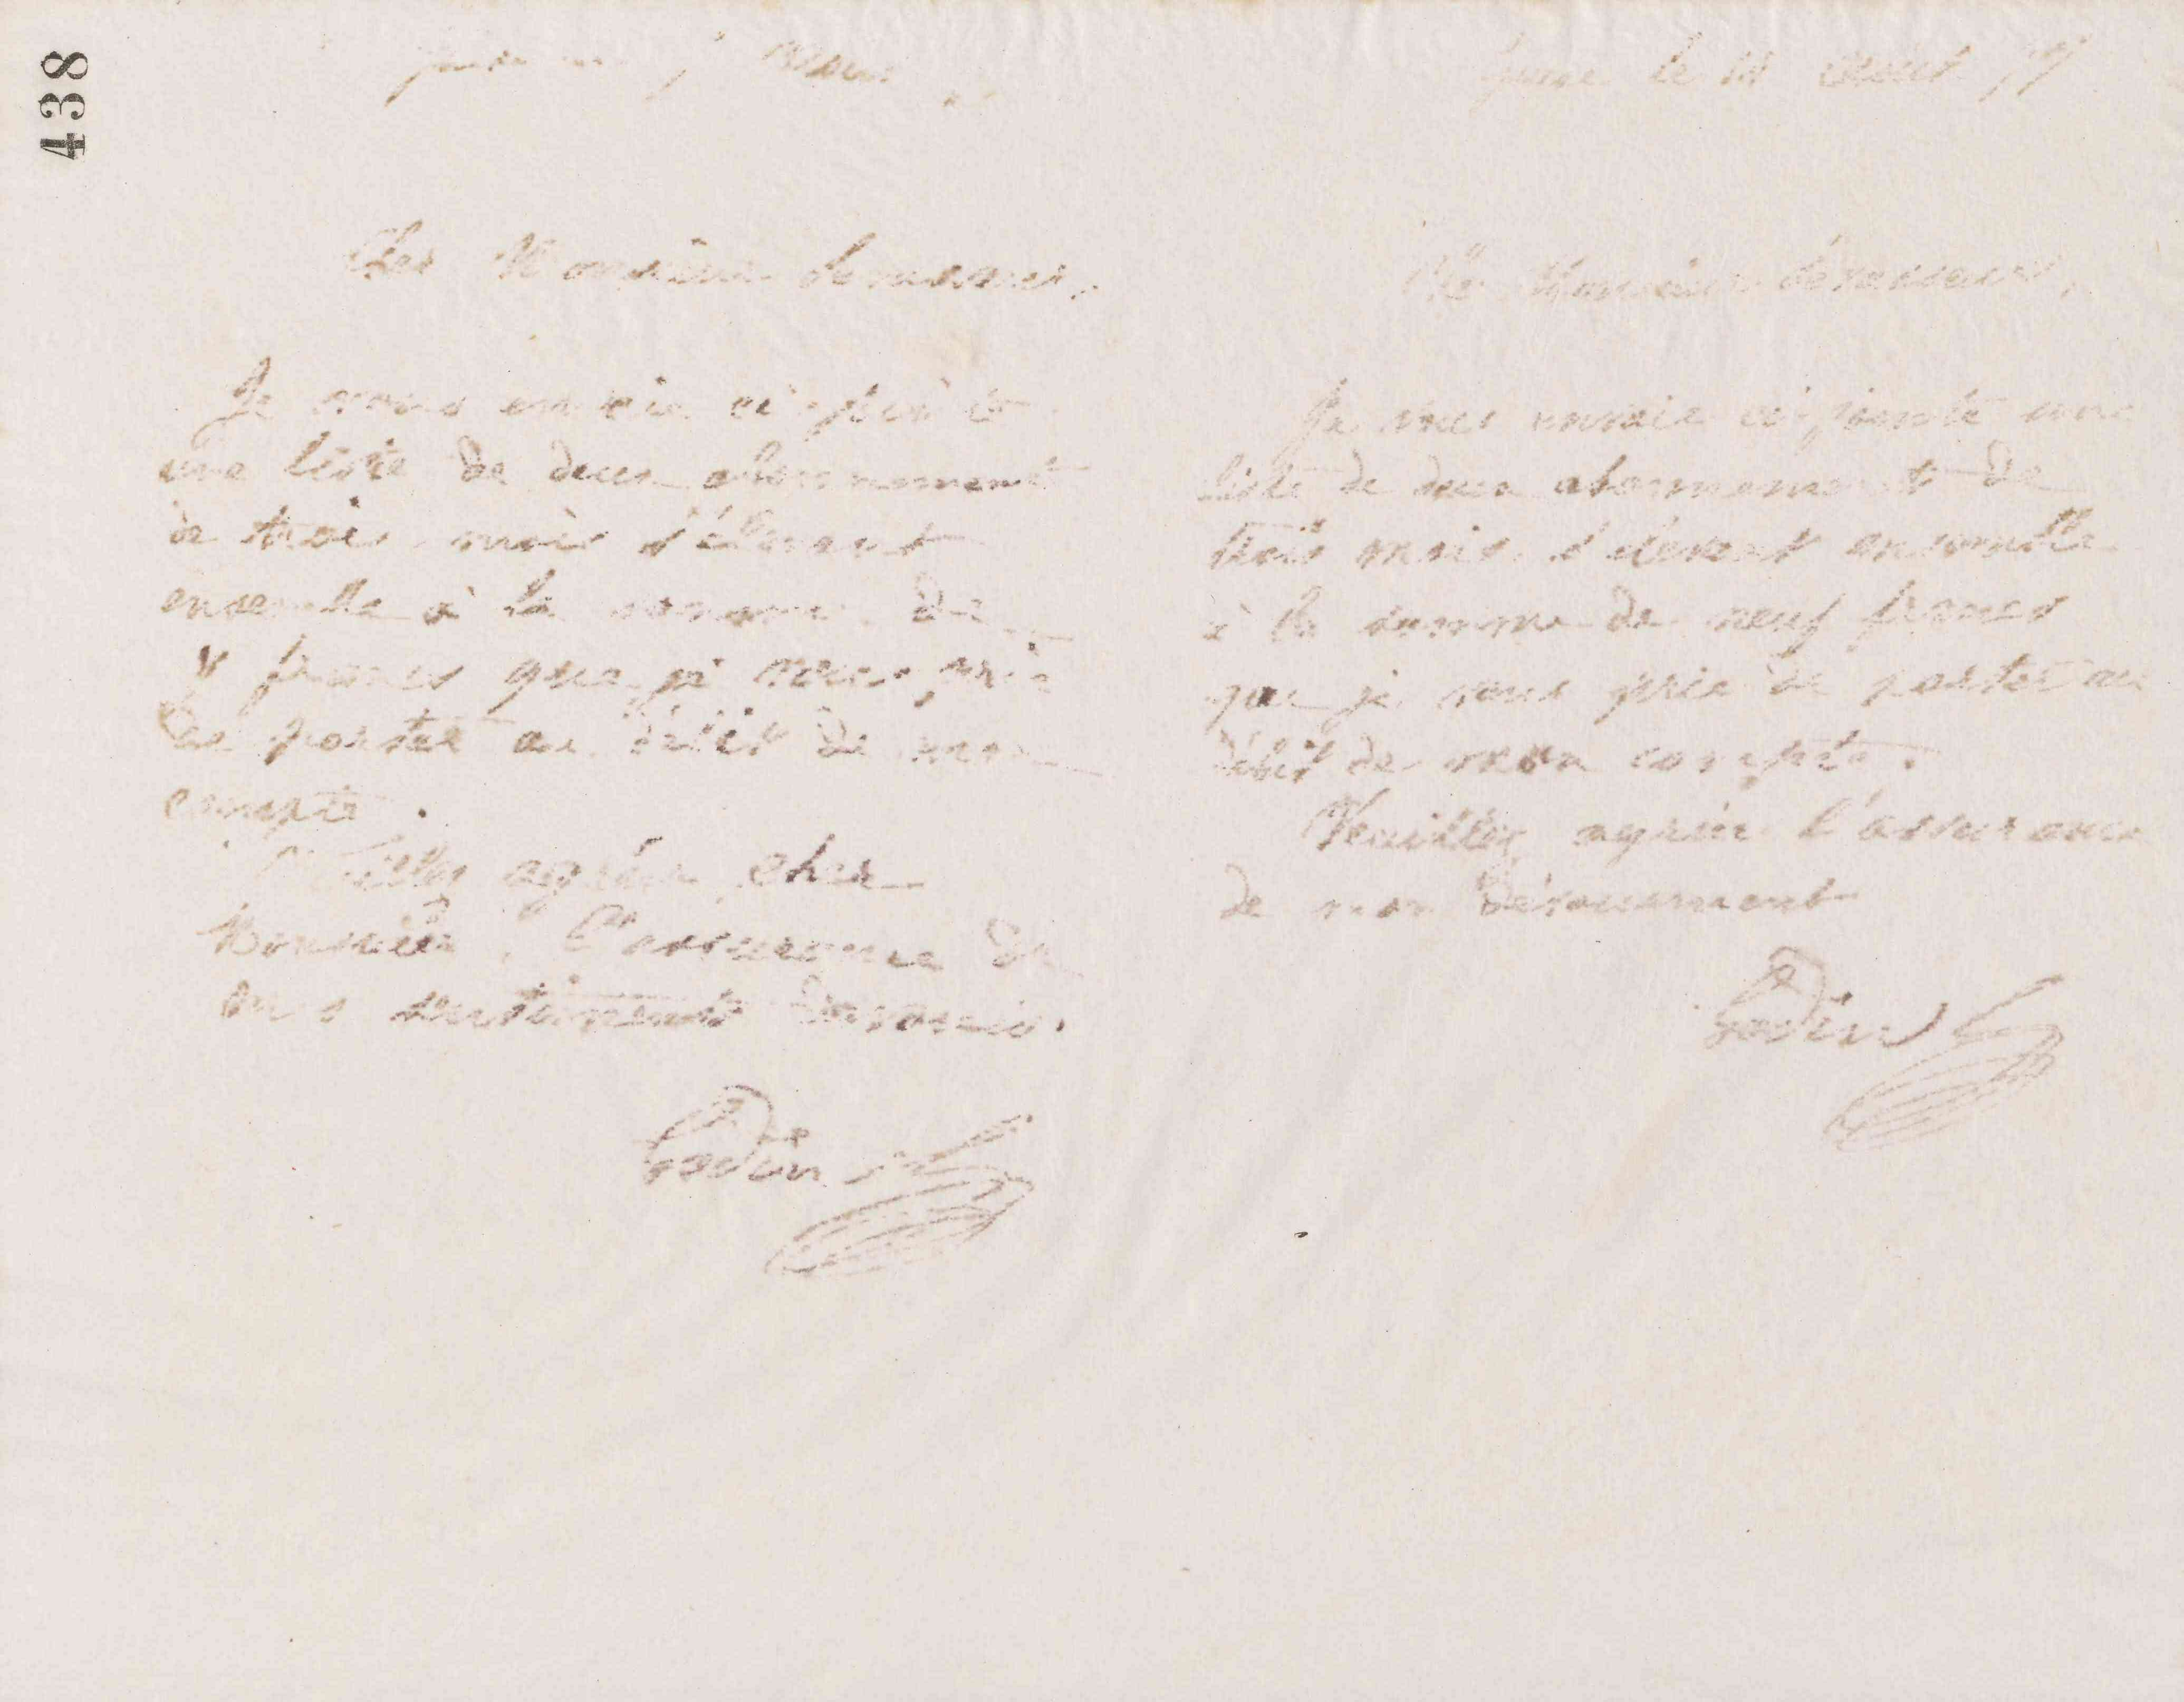 438
Cher Monsieur
Je vous envoie ci-joint
une liste de deux abonnement
de trois mois s'élevant
ensemble à la somme de
francs que je vous prie
de porter au débit de mon
compte.
Veuillez agréer, cher
Monsieur, l'assurance de
mes sentiments dévoués.
Godin
le 14 Août 77
Monsieur
Je vous envoie ci-jointe une
liste de deux abonnement de
trois mois s'élevant ensemble
à la somme de neuf francs
que je vous prie de porter au
débit de mon compte.
Veuillez agréer l'assurance
de mon dévouement
Godin